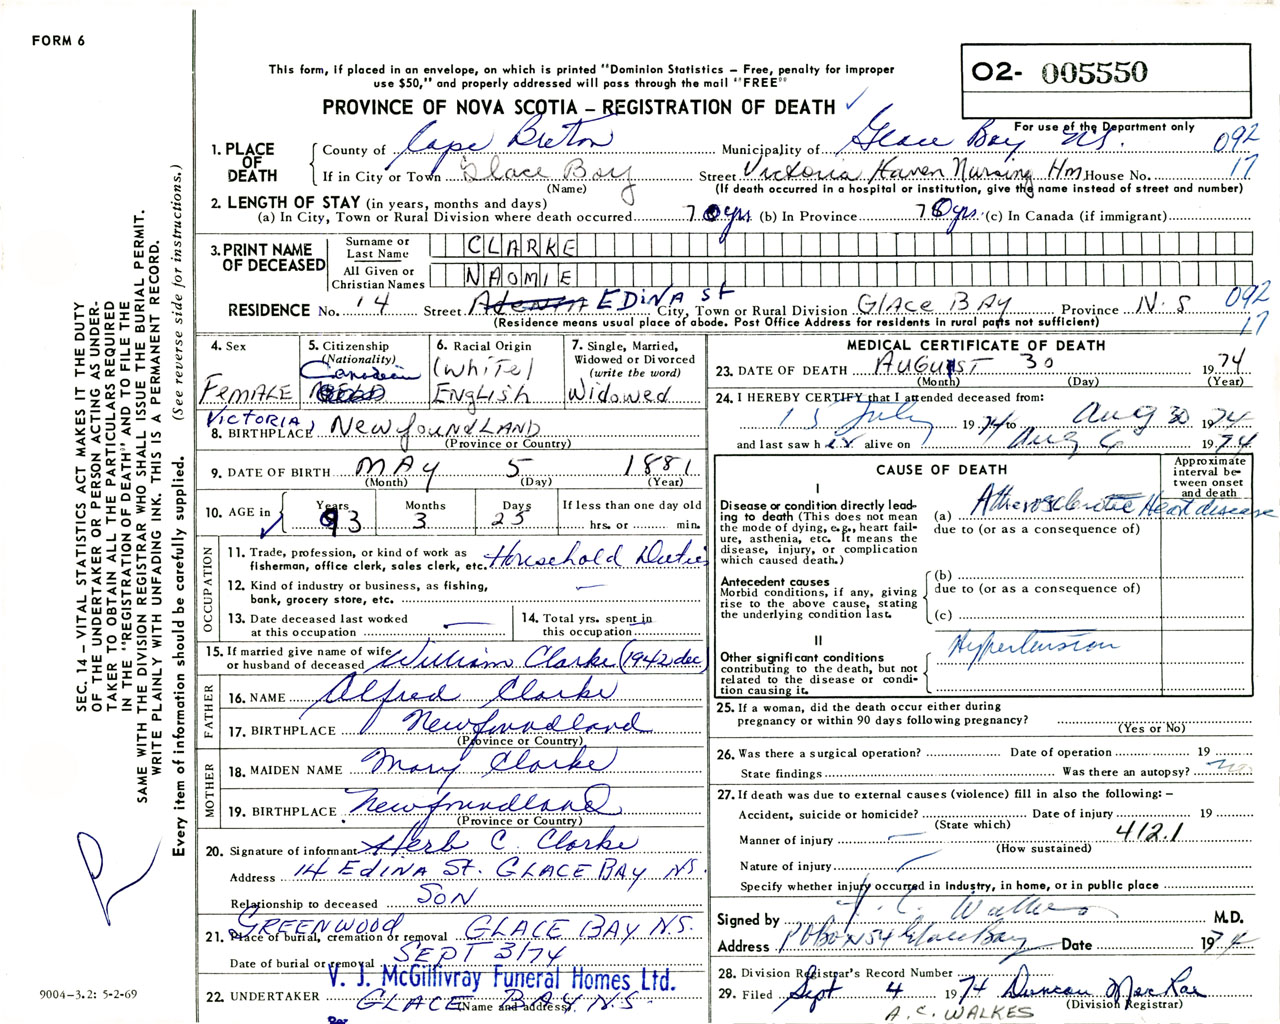 FORM 6
This form, if placed in an envelope, on which is printed "Dominion Statistics – Free, penalty for improper
use $50," and properly addressed will pass through the mail "FREE"
O2- 005550
PROVINCE OF NOVA SCOTIA – REGISTRATION OF DEATH
For use of the Department only
1. PLACE OF DEATH
County of Cape Breton Municipality of Glace Bay NS. 092
If in City or Town Glace Bay Street Victoria Haven Nursing Hm House No. 17
(Name) (If death occurred in a hospital or institution, give the name instead of street and number)
2. LENGTH OF STAY (in years, months and days)
(a) In City, Town or Rural Division where death occurred 70yrs (b) In Province 70yrs. (c) In Canada (if immigrant)
3. PRINT NAME OF DECEASED
Surname or Last Name CLARKE
All Given or Christian Names NAOMIE
RESIDENCE No. 14 Street EDINA St City, Town or Rural Division GLACE BAY Province N.S 092
(Residence means usual place of abode. Post Office Address for residents in rural parts not sufficient) 17
4. Sex
FEMALE
5. Citizenship
(Nationality)
Canadian
6. Racial Origin
(white)
ENGLISH
7. Single, Married,
Widowed or Divorced
(write the word)
Widowed
VICTORIA,
8. BIRTHPLACE NEWfoUNDLAND
(Province or Country)
9. DATE OF BIRTH MAY 5 1881
(Month) (Day) (Year)
10. AGE in
Years Months Days If less than one day old
93 3 25 hrs. or min.
OCCUPATION
11. Trade, profession, or kind of work as
fisherman, office clerk, sales clerk, etc. Household Duties
12. Kind of industry or business, as fishing,
bank, grocery store, etc.
13. Date deceased last worked
at this occupation
14. Total yrs. spent in
this occupation
15. If married give name of wife
or husband of deceased William Clarke (1942 dec)
FATHER
16. NAME Alfred Clarke
17. BIRTHPLACE Newfoundland
(Province or Country)
MOTHER
18. MAIDEN NAME Mary Clarke
19. BIRTHPLACE Newfoundland
(Province or Country)
20. Signature of informant Herb C. Clarke
Address 14 EDINA St. GLACE BAY NS.
Relationship to deceased SON
GREENWOOD
21. Place of burial, cremation or removal GLACE BAY N.S.
Date of burial or removal SEPT 3/74
V. J. McGillivray Funeral Homes Ltd.
22. UNDERTAKER GLACE BAY N.S.
(Name and address)
Per
MEDICAL CERTIFICATE OF DEATH
23. DATE OF DEATH AUGUST 30 1974
(Month) (Day) (Year)
24. I HEREBY CERTIFY that I attended deceased from:
15 July 1974 to Aug 30 1974
and last saw her alive on Aug 6 1974
CAUSE OF DEATH
Approximate
interval be-
tween onset
and death
I
Disease or condition directly lead-
ing to death (This does not mean
the mode of dying, e.g., heart fail-
ure, asthenia, etc. It means the
disease, injury, or complication
which caused death.)
(a) Atherosclerotic Heart disease
due to (or as a consequence of)
Antecedent causes
Morbid conditions, if any, giving
rise to the above cause, stating
the underlying condition last.
(b)
due to (or as a consequence of)
(c)
II
Other significant conditions
contributing to the death, but not
related to the disease or condi-
tion causing it.
Hypertension
25. If a woman, did the death occur either during
pregnancy or within 90 days following pregnancy?
(Yes or No)
26. Was there a surgical operation? Date of operation 19
State findings Was there an autopsy? no
27. If death was due to external causes (violence) fill in also the following: –
Accident, suicide or homicide? Date of injury 19
(State which)
Manner of injury 412.1
(How sustained)
Nature of injury
Specify whether injury occurred in industry, in home, or in public place
Signed by A. C. Walkes M.D.
Address P O Box 54 Glace Bay Date 1974
28. Division Registrar's Record Number
29. Filed Sept 4 1974 Duncan MacRae
(Division Registrar)
A.C. WALKES
SEC. 14 – VITAL STATISTICS ACT MAKES IT THE DUTY
OF THE UNDERTAKER OR PERSON ACTING AS UNDER-
TAKER TO OBTAIN ALL THE PARTICULARS REQUIRED
IN THE "REGISTRATION OF DEATH" AND TO FILE THE
SAME WITH THE DIVISION REGISTRAR WHO SHALL ISSUE THE BURIAL PERMIT.
WRITE PLAINLY WITH UNFADING INK. THIS IS A PERMANENT RECORD.
Every item of information should be carefully supplied. (See reverse side for instructions.)
9004-3.2: 5-2-69